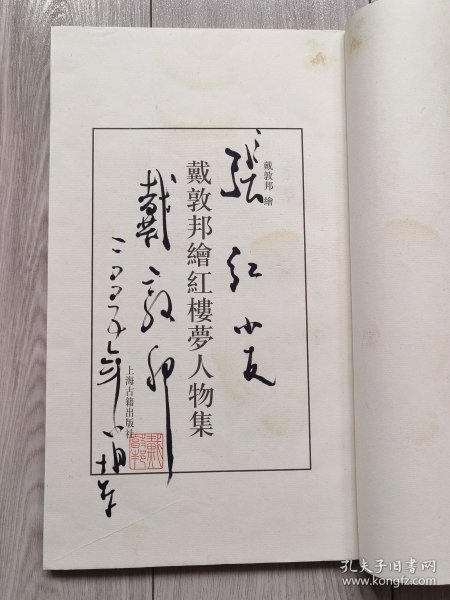 戴敦邦 繪
張 紅 小友
戴敦邦繪紅樓夢人物集
戴敦邦
上海古籍出版社
二〇〇五年
孔夫子旧书网
www.kongfz.com